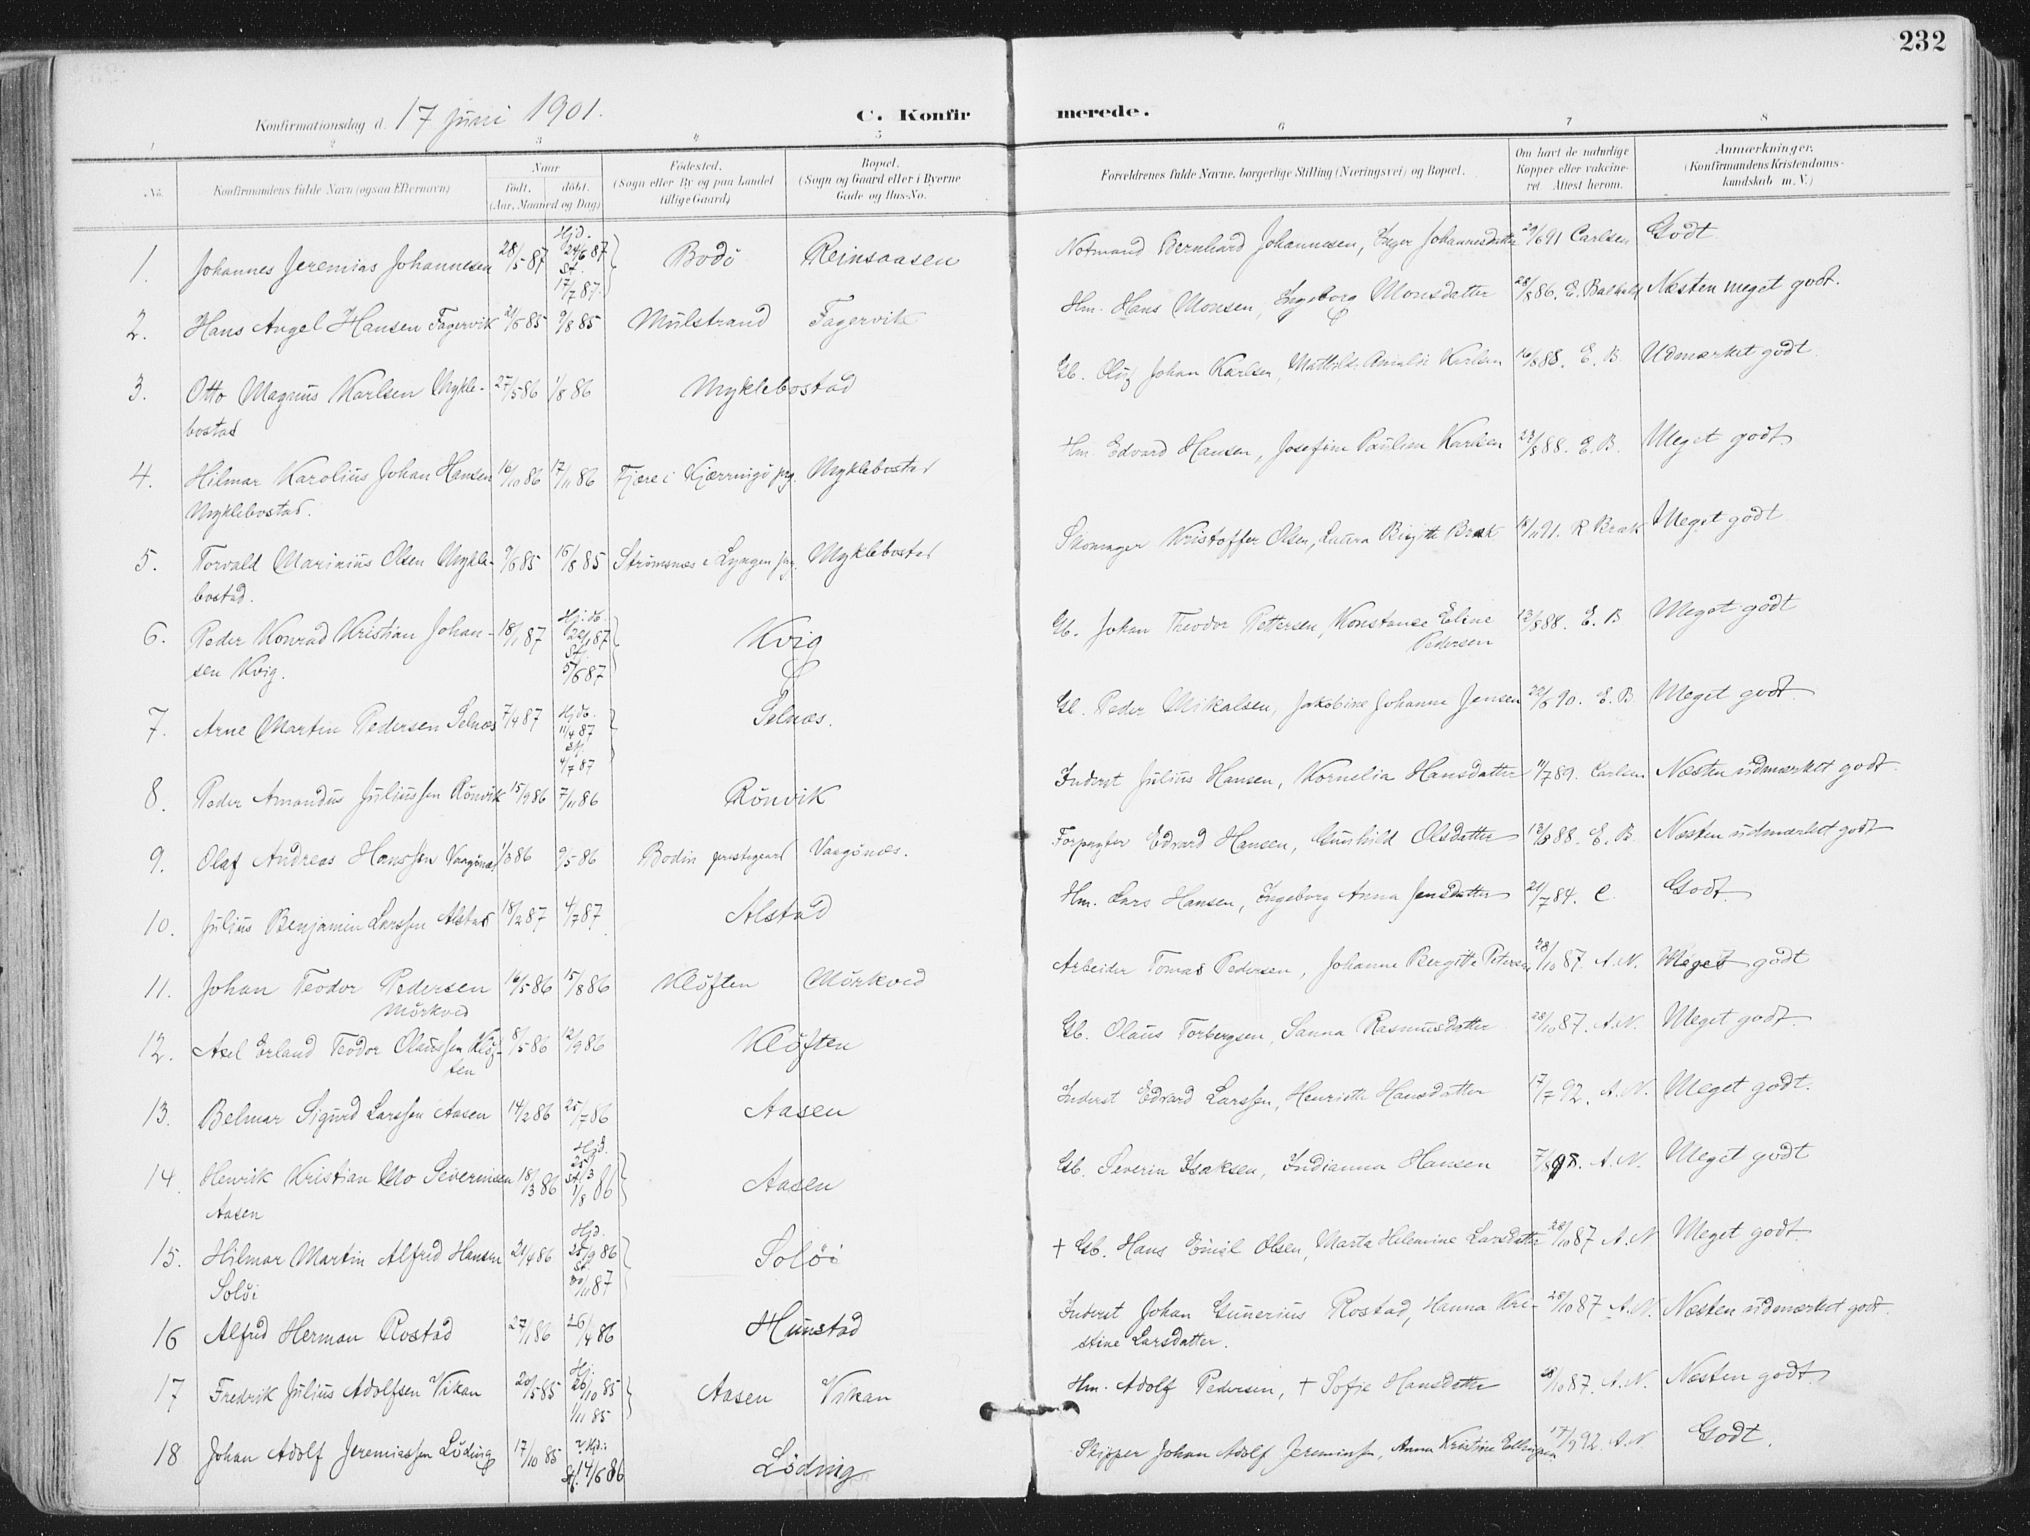 232
Konfirmationsdag d. 17 Juni 1901.
C. Konfirmerede.
1 2 3 4 5 6 7 8
No.
Konfirmandens fulde Navn (ogsaa Efternavn)
Naar
født. døbt.
(Aar, Maaned og Dag)
Fødested.
(Sogn eller By og paa Landet
tillige Gaard)
Bopæl.
(Sogn og Gaard eller i Byerne
Gade og Hus-No.
Forældrenes fulde Navne, borgerlige Stilling (Næringsvei) og Bopæl.
Om havt de naturlige
Kopper eller vakcine-
ret Attest herom.
Anmærkninger.
(Konfirmandens Kristendoms-
kundskab m. V.)
1. Johannes Jeremias Johannesen 28/5 87 Hjd. 24/6 87 St. 17/7 87. Bodö Reinsaasen Notmand Bernhard Johannesen, Inger Johannesdatter 29/6 91 Carlsen Godt
2. Hans Angel Hansen Fagervik 21/5 85 9/8 85 Mulstrand Fagervik Hm. Hans Monsen, Ingeborg Monsdatter 28/8 86. E. Næsten meget godt.
3. Otto Magnus Karlsen Mykle-
bostad 27/5 86 1/8 86 Myklebostad Gb. Johan Karlsen, Karlsen 16/8 88. E. B. Udmærket godt.
4. Hilmar Karolius Johan Hansen
Myklebostad. 16/10 86 17/11 86 Fjære i Kjærringö prg. Myklebostad Hm. Edvard Hansen, Josefine Pauline Karlsen 23/8 88. E. B. Meget godt.
5. Torvald Marinius Olsen Mykle-
bostad. 9/6 85 16/8 85 Strömsnæs i Lyngen prg. Myklebostad Kristoffer Olsen, Birgitte Brak 18/11 91. R Brak Meget godt
6. Peder Konrad Kristian Johan-
sen Kvig. 18/1 87 Hj.d. 22/1 87 St. 5/6 87 Kvig Gb. Johan Theodor Pettersen, Konstanse Eline
Pedersen 13/8 88. E. B Meget godt
7. Arne Martin Pedersen Selnæs 7/4 87 Hjd. 11/4 87 St. 4/7 87 Selnæs. Gb. Peder Mikalsen, Jakobine Johanna Jensen 20/6 90. E. B Meget godt
8. Peder Amandus Juliussen Rönvik 15/9 86 7/11 86 Rönvik Inderst Julius Hansen, Kornelia Hansdatter 11/7 89. Carlsen Næsten udmærket godt.
9. Olaf Andreas Hanssen Vaagönæs 86 9/5 86 Bodin prestegaard Vaagönæs. Forpagter Edvard Hansen, Gunhild Olsdatter 13/8 88. E. B. Næsten udmærket godt
10. Julius Benjamin Larssen Alstad 18/2 87 4/7 87 Alstad Hm. Lars Hansen, Ingeborg Anna Jensdatter 21/7 84. C. Godt.
11. Johan Teodor Pedersen
Mörkved 16/5 86 15/8 86 Klöften Mörkved Arbeider Tomas Pedersen, Johanne Bergitte Petersen 28/10 87. A. N. Meget godt
12. Axel Erland Teodor Olaussen Klöf-
ten 8/5 86 12/9 86 Klöften Gb. Olaus Torbergsen, Sanna Rasmusdatter 28/10 87. A. N. Meget godt.
13. Belmar Sigurd Larssen Aasen 14/2 86 25/7 86 Aasen Inderst Edvard Larssen, Henriette Hansdatter 17/7 92. A. N. Meget godt.
14. Henrik Kristian Mo Severinsen
Aasen 18/3 86 Hjd. 25/3 St. 1/8 86 Aasen Gb. Severin Isaksen, Indianna Hansen A. N. Meget godt
15. Hilmar Martin Alfred Hansen
Solöi 21/4 86 Hjd. 25/9 86 St. 30/11 87 Solöi † Gb. Hans Emil Olsen, Marta Helmine Larsdatter 28/10 87 A. N Meget godt.
16 Alfred Herman Rostad 27/1 86 26/4 86 Hunstad Inderst Johan Gunerius Rostad, Hanna Kri-
stine Larsdatter. 28/10 87 A. N. Næsten udmærket godt.
17 Fredrik Julius Adolfsen Vikan 20/5 85 Hj. 26/10 85 1/11 85 Aasen Vikan Hm. Adolf Pedersen, † Sofie Hansdatter 28/10 87. A. N. Næsten godt.
18 Johan Adolf Jeremiassen Löding 17/10 85 Hjd. St. 14/6 86 Löding Skipper Johan Adolf Jeremiassen, Anna Kristine Ellingsen 17/9 92. A. N Godt.